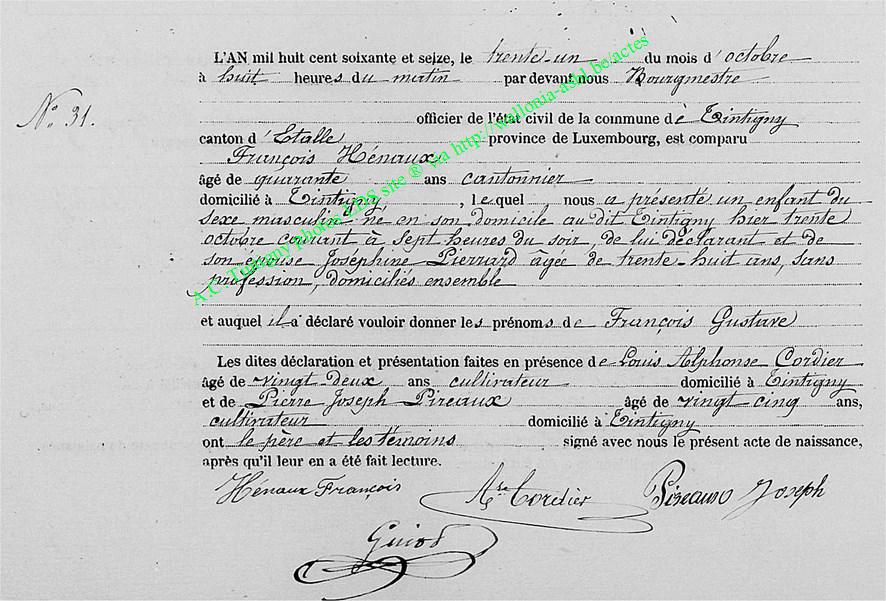 L'AN mil huit cent soixante et seize, le trente un du mois d'octobre
à huit heures du matin par devant nous Bourgmestre
N° 31.
officier de l'état civil de la commune de Tintigny
canton d'Etalle province de Luxembourg, est comparu
François Hénaux
âgé de quarante ans cantonnier
domicilié à Tintigny, lequel nous a présenté un enfant du
sexe masculin né en son domicile au dit Tintigny hier trente
octobre courant à sept heures du soir, de lui déclarant et de
son épouse Joséphine Pierrard âgée de trente-huit ans, sans
profession, domiciliés ensemble
et auquel il a déclaré vouloir donner les prénoms de François Gustave
Les dites déclaration et présentation faites en présence de Louis Alphonse Cordier
âgé de vingt deux ans cultivateur domicilié à Tintigny
et de Pierre Joseph Pireaux âgé de vingt cinq ans,
cultivateur domicilié à Tintigny
ont le père et les témoins signé avec nous le présent acte de naissance,
après qu'il leur en a été fait lecture.
Hénaux François Alse Cordier Pireaux Joseph
A.C. Tintigny photos LDS site ® via http://wallonia-asbl.be/actes